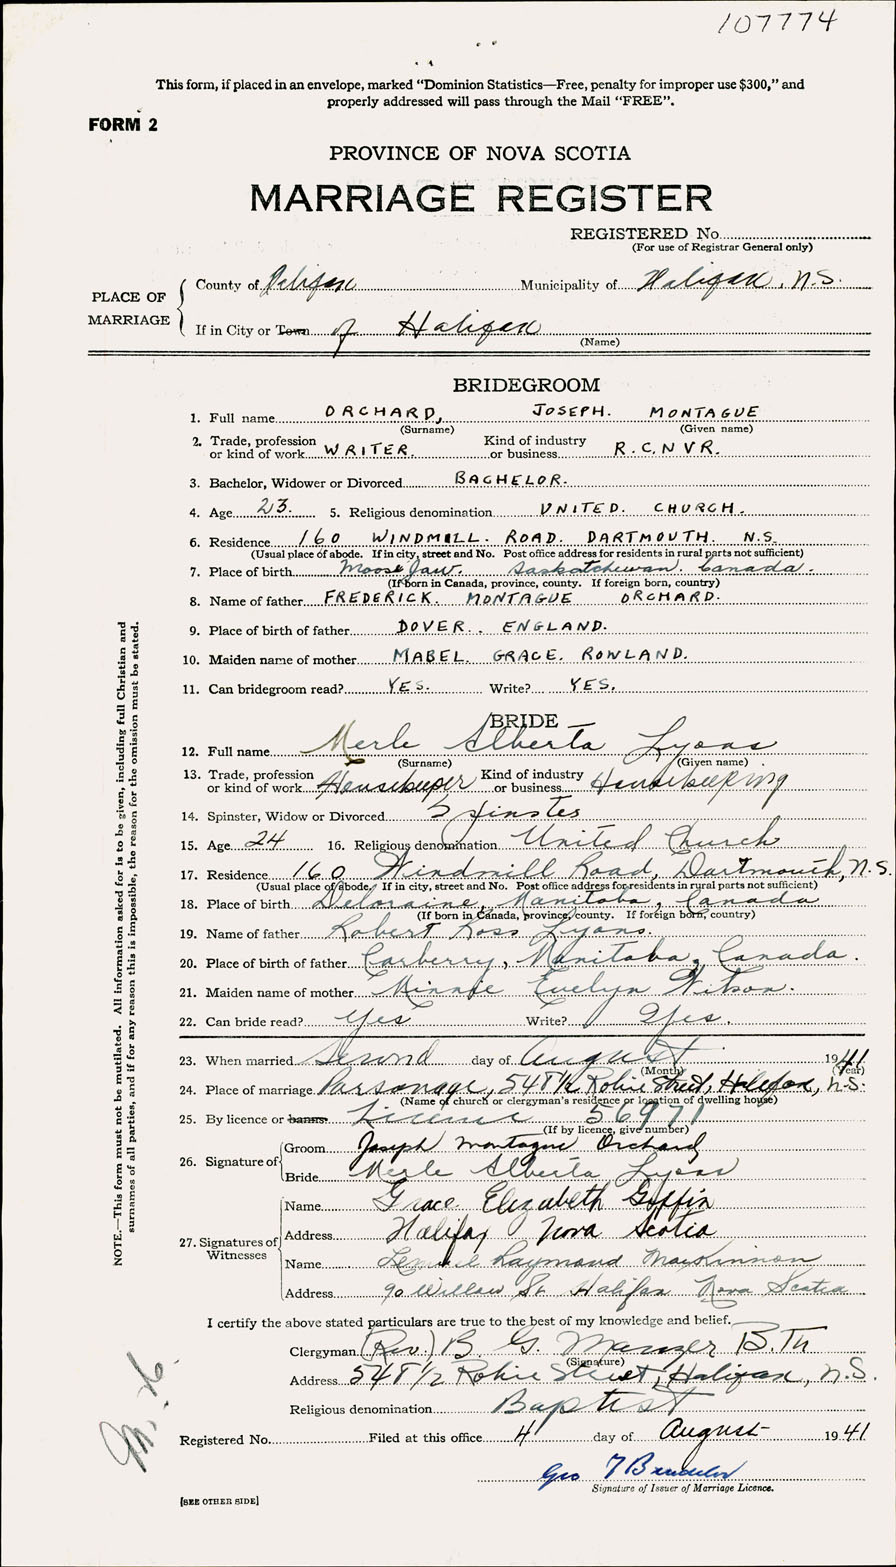 107774
This form, if placed in an envelope, marked “Dominion Statistics—Free, penalty for improper use $300,” and
properly addressed will pass through the Mail “FREE”.
FORM 2
PROVINCE OF NOVA SCOTIA
MARRIAGE REGISTER
REGISTERED No.
(For use of Registrar General only)
PLACE OF MARRIAGE
County of Halifax Municipality of Halifax, N.S.
If in City or Town of Halifax
(Name)
BRIDEGROOM
1. Full name ORCHARD, JOSEPH. MONTAGUE
(Surname) (Given name)
2. Trade, profession or kind of work WRITER. Kind of industry or business R.C.N.V.R.
3. Bachelor, Widower or Divorced BACHELOR.
4. Age 23. 5. Religious denomination UNITED. CHURCH.
6. Residence 160 WINDMILL. ROAD. DARTMOUTH. N.S.
(Usual place of abode. If in city, street and No. Post office address for residents in rural parts not sufficient)
7. Place of birth Moose Jaw. Saskatchewan. Canada.
(If born in Canada, province, county. If foreign born, country)
8. Name of father FREDERICK. MONTAGUE ORCHARD.
9. Place of birth of father DOVER.. ENGLAND.
10. Maiden name of mother MABEL. GRACE. ROWLAND.
11. Can bridegroom read? YES. Write? YES.
BRIDE
12. Full name Merle Alberta Lyons
(Surname) (Given name)
13. Trade, profession or kind of work Housekeeper Kind of industry or business Housekeeping
14. Spinster, Widow or Divorced Spinster
15. Age 24 16. Religious denomination United Church
17. Residence 160 Windmill Road, Dartmouth, N.S.
(Usual place of abode. If in city, street and No. Post office address for residents in rural parts not sufficient)
18. Place of birth Deloraine, Manitoba, Canada
(If born in Canada, province, county. If foreign born, country)
19. Name of father Robert Ross Lyons.
20. Place of birth of father Carberry, Manitoba, Canada.
21. Maiden name of mother Minnie Evelyn Wilson.
22. Can bride read? Yes Write? Yes.
23. When married Second day of August 1941
(Month) (Year)
24. Place of marriage Parsonage, 548½ Robie Street, Halifax, N.S.
(Name of church or clergyman's residence or location of dwelling house)
25. By licence or banns Licence 56971
(If by licence, give number)
26. Signature of Groom Joseph Montague Orchard
Bride Merle Alberta Lyons
27. Signatures of Witnesses
Name Grace Elizabeth Goffin
Address Halifax Nova Scotia
Name Raymond MacKinnon
Address 90 Willow St Halifax Nova Scotia
I certify the above stated particulars are true to the best of my knowledge and belief.
Clergyman (Rev.) B. G. Manzer B.Th
(Signature)
Address 548½ Robie Street, Halifax, N.S.
Religious denomination Baptist
Registered No. Filed at this office 4 day of August 1941
Geo
Signature of Issuer of Marriage Licence.
[SEE OTHER SIDE]
NOTE.—This form must not be mutilated. All information asked for is to be given, including full Christian and
surnames of all parties, and if for any reason this is impossible, the reason for the omission must be stated.